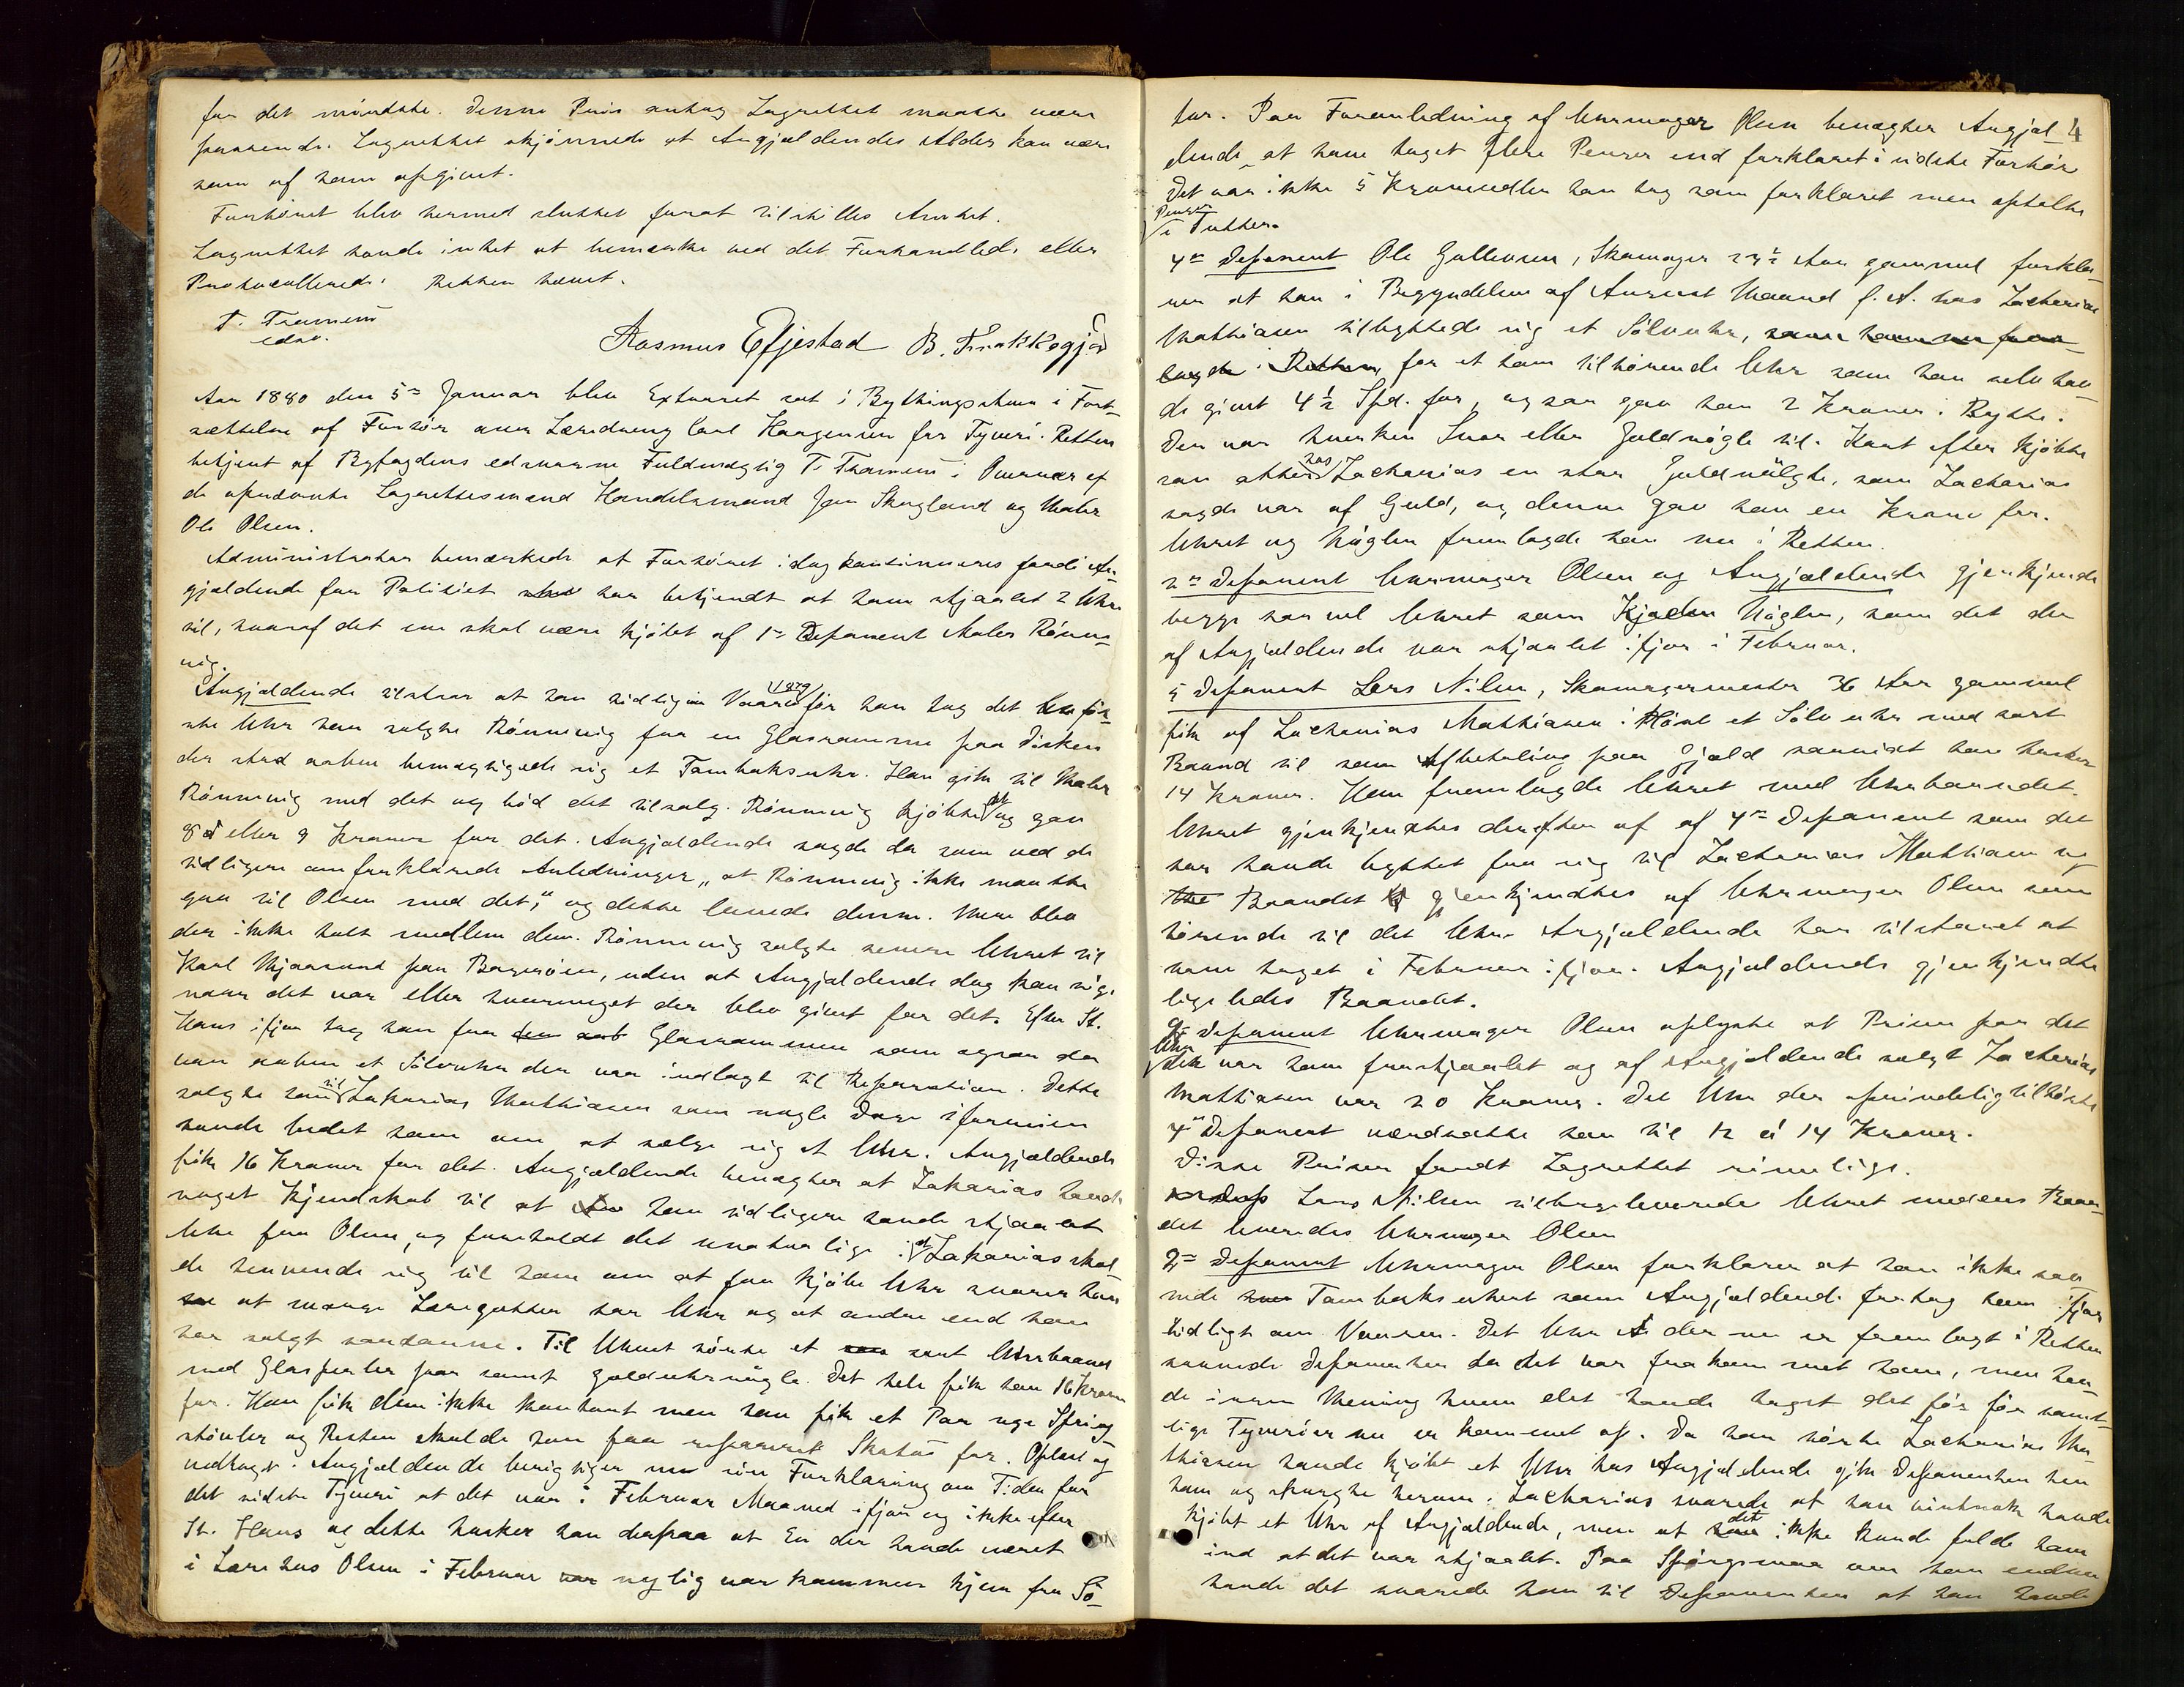 for det mindste. Denne Pris antog Lagrettet maatte være
passende. Lagrettet skjønnede at Angjældendes Alder kan være
som af ham opgivet.
Forhøret blev hermed sluttet forat tilstilles Amtet.
Lagrettet havde intet at bemærke ved det Forhandlede eller
Protocollerede. Retten hævet.
T. Tramem
edsv.
Rasmus Efjestad B. Frakkagjer
Aar 1880 den 5te Januar blev Extraret sat i Bythingstuen i Fort-
sættelse af Forhør over Læredreng Carl Haagensen for Tyveri. Retten
betjent af Byfogdens edsvorne Fuldmægtig T. Tramem i Overvær af
de opnævnte Lagrettesmænd Handelsmand Jon Skogland og Maler
Ole Olsen.
Administrator bemærkede at Forhøret idag kontinueres fordi An-
gjældende for Politiet har bekjendt at have stjaalet 2 Uhre
til, hvoraf det ene skal være kjøbt af 1ste Deponent Maler Rønne-
vig.
Angjældende tilstaar at han tidlig om Vaaren 1879 før han tog det før-
ste Uhr han solgte Rønnevig fra en Glasramme paa Disken
der stod aaben bemægtigede sig et Tambaksuhr. Han gik til Maler
Rønnevig med det og bød det tilsalg. Rønnevig kjøbte det og gav
8 eller 9 Kroner for det. Angjældende sagde da som ved de
tidligere omforklarede Anledninger „at Rønnevig ikke maatte
gaa til Olsen med det", og dette lovede denne. Mere blev
der ikke talt mellem dem. Rønnevig solgte senere Uhret til
Karl Mjaasund paa Bagerøen, uden at Angjældende dog kan sige
naar det var eller hvormeget der blev givet for det. Efter St.
Hans ifjor tog han fra den Glasrammen som ogsaa da
var aaben et Sølvuhr der var indlagt til Reparation. Dette
solgte han til Zakarias Mathiasen som nogle Dage iforveien
havde bedet ham om at sælge sig et Uhr. Angjældende
fik 16 Kroner for det. Angjældende benægter at Zakarias havde
noget Kjendskab til at han tidligere havde stjaalet
Uhre fra Olsen, og foreholdt det unaturlige i at Zakarias skul-
de henvende sig til ham om at faa kjøbe Uhr svarer han
at mange Læregutter har Uhr og at andre end han
har solgt saadanne. Til Uhret hørte et sort Uhrbaand
med Glasperler paa samt Golduhrnøgle. Det hele fik han 16 Kroner
for. Han fik dem ikke kontant men han fik et Par nye Spring-
støvler og Resten skulde han faa repareret Skotøi for. Oplæst og
vedtaget. Angjældende berigtiger nu sin Forklaring om Tiden for
det sidste Tyveri at det var i Februar Maaned ifjor og ikke efter
St. Hans og dette husker han derpaa at En der havde været
i Lære hos Olsen i Februar nylig var kommen hjem fra Sø-
4
tur. Paa Foranledning af Uhrmager Olsen benægter Angjæl-
dende at have taget flere Penger end forklaret i sidste Forhør
Det var ikke 5 Kronesedler han tog som forklaret men optalte
Penger
i Tutter.
4de Deponent Ole Gullovsen, Skomager 23½ Aar gammel forkla-
rer at han i Begyndelsen af August Maaned f. A. hos Zacharias
Mathiasen tilbyttede sig et Sølvuhr, som han nu frem-
lagde i Retten, for et ham tilhørende Uhr som han selv hav-
de givet 4½ Spd. for, og saa gav han 2 Kroner i Bytte.
Der var hverken Snor eller Goldnøgle til. Kort efter kjøbte
han atter hos Zacharias en stor Guldnøgle, som Zacharias
sagde var af Guld, og denne gav han en Krone for.
Uhret og Nøglen fremlagde han nu i Retten.
2den Deponent Uhrmager Olsen og Angjældende gjenkjende
begge saavel Uhret som Nøglen, som det der
af Angjældende var stjaalet ifjor i Februar.
5 Deponent Lars Nilsen, Skomagermester 36 Aar gammel
fik af Zacharias Mathiasen i Høst et Sølvuhr med sort
Baand til som Afbetaling paa Gjæld saavidt han husker
14 Kroner. Han fremlagde Uhret med Uhrbaandet.
Uhret gjenkjendtes derefter af af 4de Deponent som det
han havde byttet fra sig til Zacharias Mathiasen og
Baandet gjenkjendtes af Uhrmager Olsen som
hørende til det Uhr Angjældende har tilstaaet at
have taget i Februar ifjor. Angjældende gjenkjendte
ligeledes Baandet.
2den Deponent Uhrmager Olsen oplyste at Prisen paa det
Uhr
der var ham frastjaalet og af Angjældende solgt Zacharias
Mathiasen var 20 Kroner. Det Uhr der oprindelig tilhørte
4de Deponent værdsatte han til 12 á 14 Kroner.
Disse Priser fandt Lagrettet rimelige.
Lars Nilsen tilbageleverede Uhret medens Baan-
det leveredes Uhrmager Olsen
2den Deponent Uhrmager Olsen forklarer at han ikke sav-
nede Tambaksuhret som Angjældende fratog ham ifjor
tidligt om Vaaren. Det Uhr der nu er fremlagt i Retten
savnede Deponenten da det var frakommet ham, men hav-
de ingen Mening hvem det havde taget det før før samt-
lige Tyverier nu er kommet op. Da han hørte Zacharias Ma-
thiasen havde kjøbt et Uhr hos Angjældende gik Deponenten hen
ham og spurgte herom. Zacharias svarede at han vistnok havde
kjøbt et Uhr af Angjældende, men at det ikke kunde falde ham
ind at det var stjaalet. Paa Spørgsmaal om han endnu
havde det svarede han til Deponenten at han havde